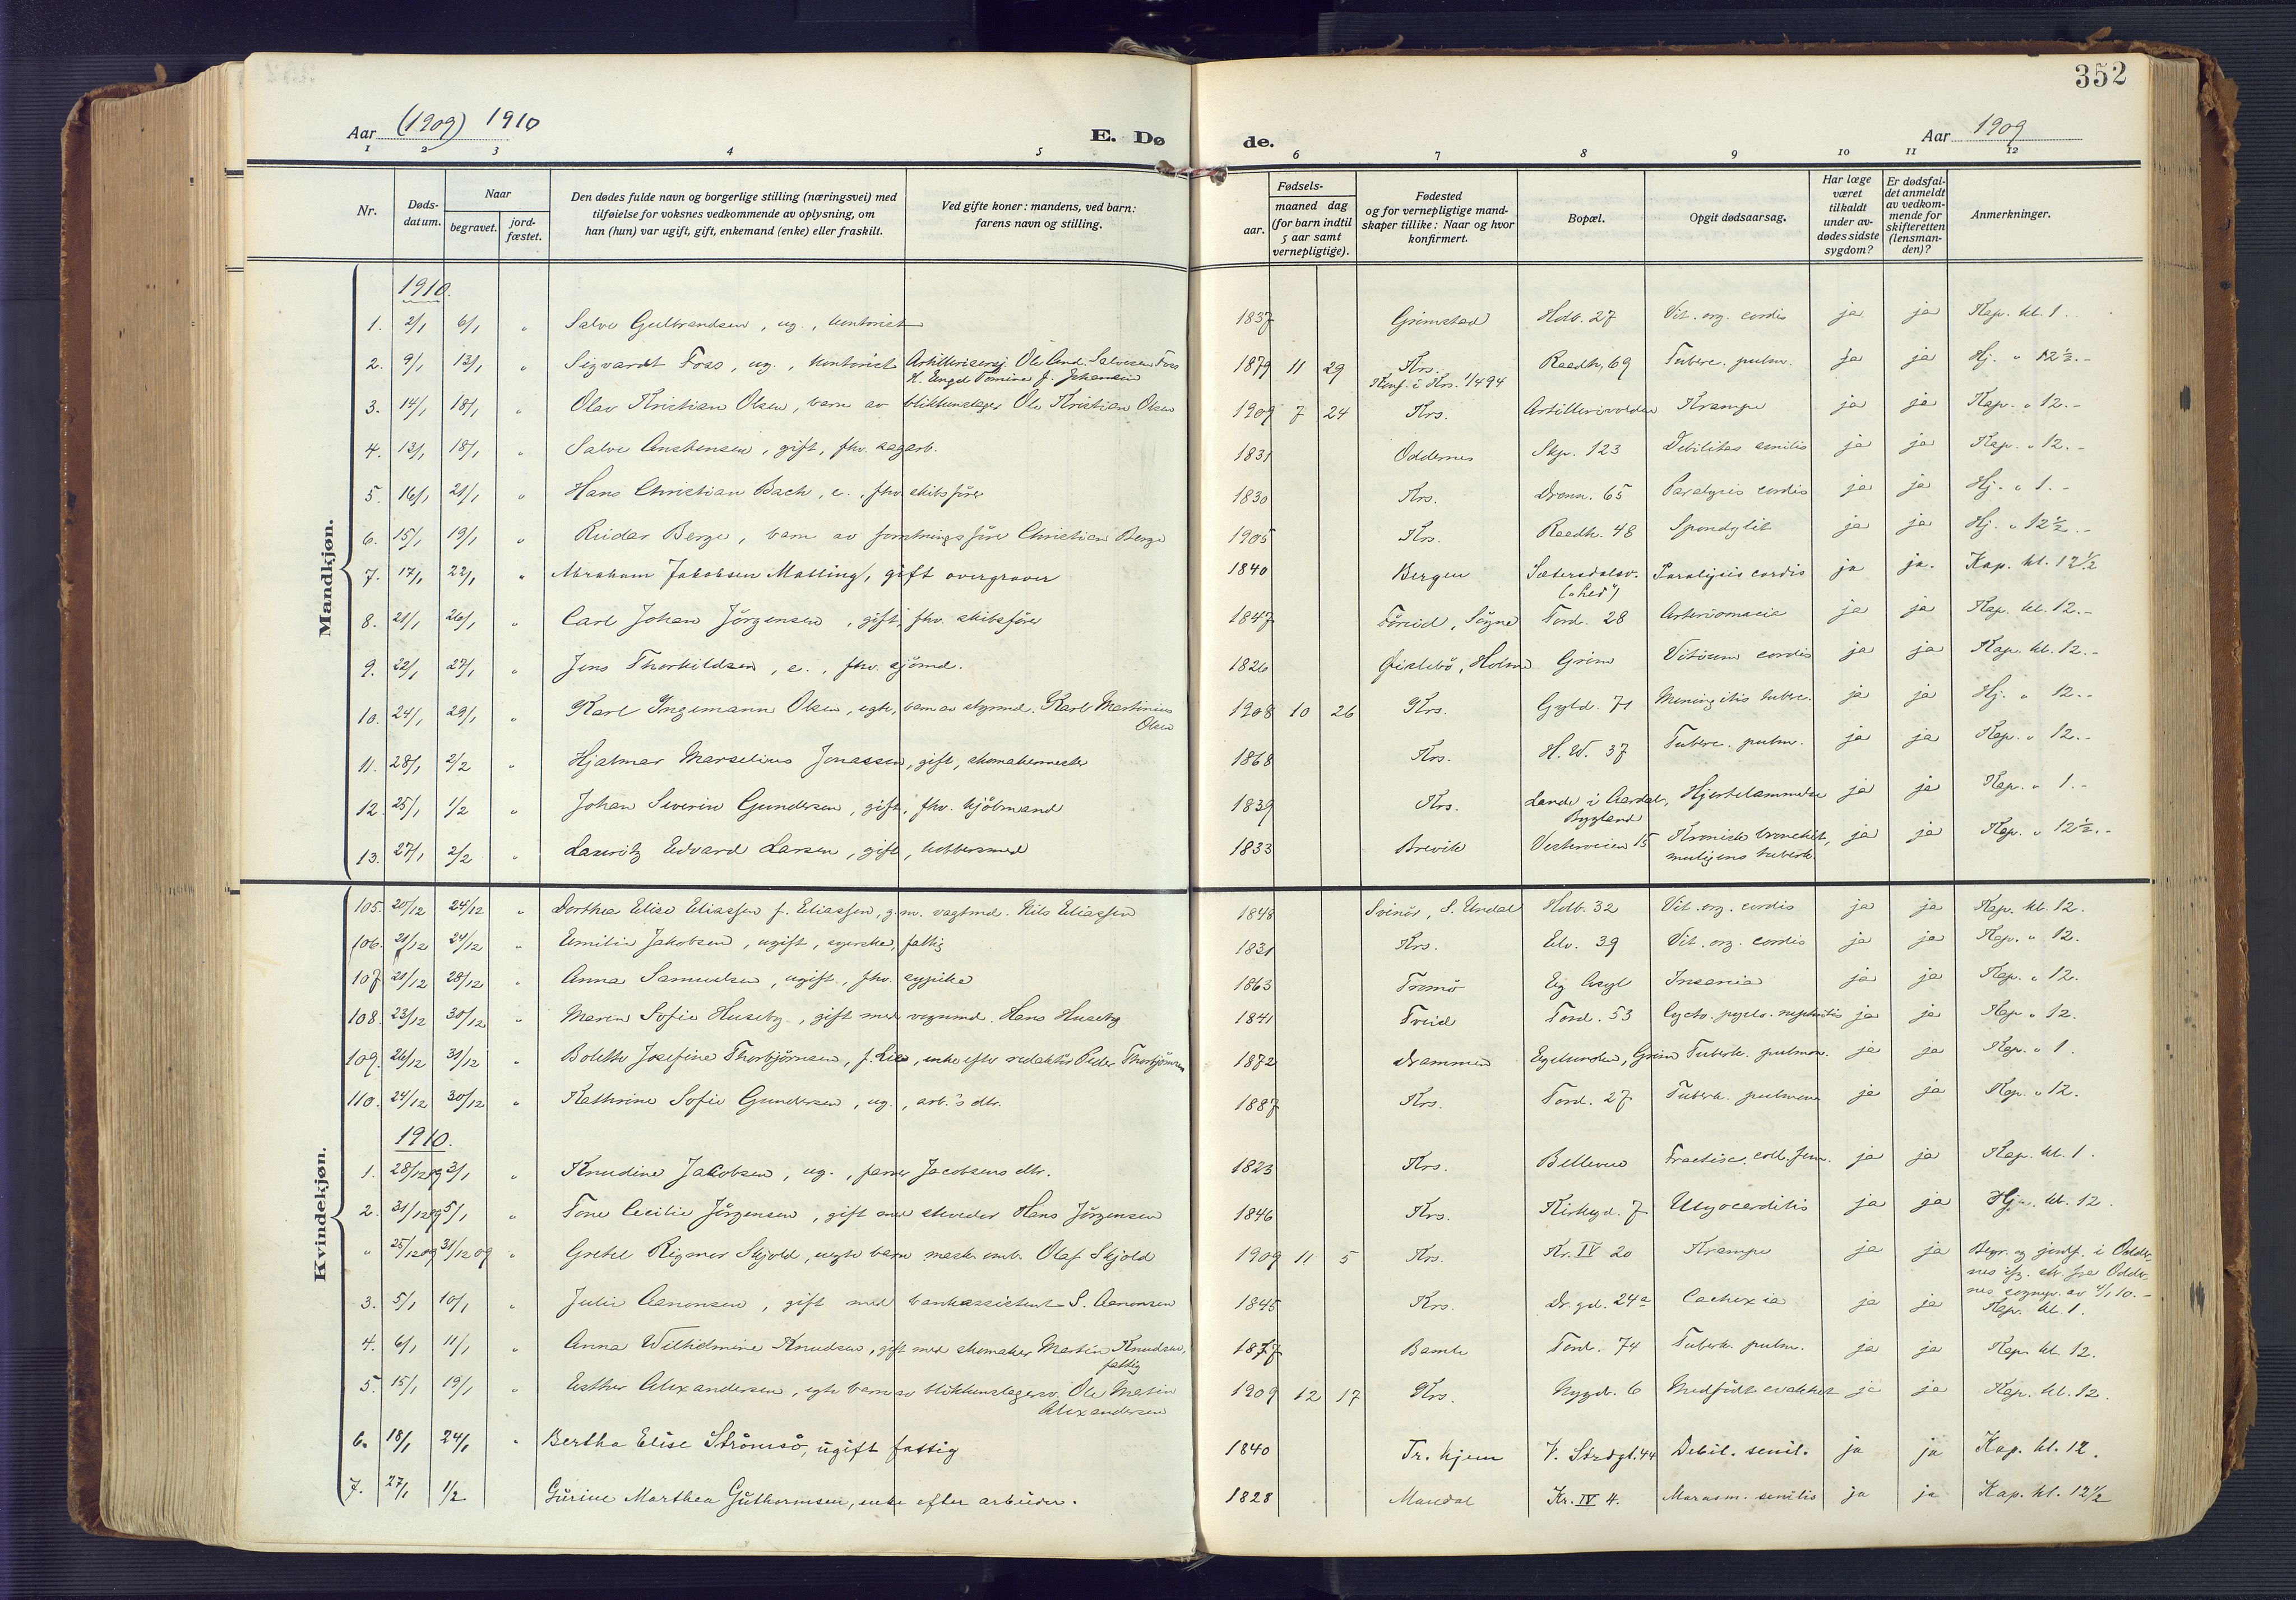 352
Aar (1909) 1910 E. Dø de. Aar 1909
1 2 3 4 5 6 7 8 9 10 11 12
Nr. Døds-datum. Naar begravet. jord-fæstet. Den dødes fulde navn og borgerlige stilling (næringsvei) med tilføielse for voksnes vedkommende av oplysning, om han (hun) var ugift, gift, enkemand (enke) eller fraskilt. Ved gifte koner: mandens, ved barn: farens navn og stilling. Fødsels- aar. maaned dag (for barn indtil 5 aar samt vernepligtige). Fødested og for vernepligtige mand-skaper tillike: Naar og hvor konfirmert. Bopæl. Opgit dødsaarsag. Har læge været tilkaldt under av-dødes sidste sygdom? Er dødsfal-det anmeldt av vedkom-mende for skifteretten (lensman-den)? Anmerkninger.
Mandkjøn.
1910.
1. 2/1 6/1 " Salve Gulbrandsen, ug., kontorist 1837 Grimstad Holb. 27 Vit. org. cordis ja ja Kap. kl. 1.
2. 9/1 13/1 " Sigvardt Foss, ug., kontorist Artillerisersj. Ole And. Salvesen Foss 1879 11 29 Krs. Raadh. 69 Tuberc. pulm. ja ja Hj. " 12 1/2.-
H. Engel Tomine f. Johansen Konf. i Krs. 1/4 94
3. 14/1 18/1 " Olav Kristian Olsen, barn av blikkenslager Ole Kristian Olsen 1909 7 24 Krs. Artillerivolden Krampe ja ja Kap. " 12.-
4. 13/1 18/1 " Salve Anstensen, gift, fhv. sagarb. 1831 Oddernes Skp. 123 Debilitas senilis ja ja Kap. " 12.-
5. 16/1 21/1 " Hans Christian Bach, e., fhv. skibsfører 1830 Krs. Dronn. 65 Paralysis cordis ja ja Hj. " 1.-
6. 15/1 19/1 " Reidar Berge, barn av forretningsfører Christian Berge 1905 Krs. Raadh. 48 Spondylit ja ja Hj. " 12 1/2.-
7. 17/1 22/1 " Abraham Jakobsen Malling, gift overgraver 1840 Bergen Sætersdalsv. Paralysis cordis ja ja. Kap. kl. 12 1/2
8. 21/1 26/1 " Carl Johan Jörgensen, gift, fhv. skibsfører 1847 Søgne Tord. 28 ja ja Kap. kl. 12.-
9. 22/1 27/1 " Jens Thorkildsen, e., fhv. sjømd. 1826 Øislebö, Holme Grim Vitium cordis ja ja Kap. kl. 12.-
10. 24/1 29/1 " Karl Ingemann Olsen, egte barn av styrmd. Karl Martinius 1908 10 26 Krs. Gyld. 71 Meningitis tuberc. ja ja Hj. " 12.-
Olsen
11. 28/1 2/2 " Hjalmar Marselius Jonassen, gift, skomakermester 1868 Krs. H. W. 37 Tuberc. pulm. ja ja Kap. " 12.-
12. 25/1 1/2 " Johan Severin Gundersen, gift, fhv. kjøbmand 1839 Krs. Lande i Aardal, Hjertelammelse ja ja Kap. " 1.-
Bygland
13. 27/1 2/2 " Lauritz Edvard Larsen, gift, kobbersmed 1833 Brevik Vesterveien 15 Kronisk bronchit, ja ja Kap. " 12 1/2.-
muligens tuberk.
Kvindekjøn.
105. 20/12 24/12 " Dorthea Elise Eliassen f. Eliassen, g.m. vagtmd. Nils Eliassen 1848 Svinör, S. Undal Holb. 32 Vit. org. cordis ja ja Kap. kl. 12.
106. 21/12 24/12 " Emilie Jakobsen, ugift, syerske, fattig 1831 Krs. Elv. 39 Vit. org. cordis ja ja Kap. " 12.
107 21/12 28/12 " Anna Samuelsen, ugift, fhv. sypike 1863 Tromö Eg Asyl Insania ja ja Kap. " 12.
108. 23/12 30/12 " Maren Sofie Huseby, gift med vognmd. Hans Huseby 1841 Tveid Tord. 53 Cysto. pyelo. nephritis ja ja Kap. " 12.
109. 26/12 31/12 " Bolette Josefine Thorbjörnsen, f. Lie, enke efter redaktör Peder Thorbjörnsen 1872 Drammen Egelunden, Grim Tuberk. pulmon. ja ja Kap. " 1.
110. 24/12 30/12 " Kathrine Sofie Gundersen, ug., arb.'s dtr. 1887 Krs. Tord. 27 Tuberk. pulmon ja ja Kap. " 12.
1910.
1. 28/12 09 3/1 " Knudine Jacobsen, ug., Jacobsens dtr. 1823 Krs. Bellevue coll. fem. ja ja Kap. kl. 1.
2. 31/12 09 5/1 " Tone Cecilie Jörgensen, gift med skræder Hans Jörgensen 1846 Krs. Kirkegd. 7 Myocarditis ja ja Hj. kl. 12.
" 25/12 09 31/12 09 " Grethe Rigmor Skjold, uegte barn mask. omb. Olaf Skjold 1909 11 5 Krs. Kr. IV 20 Krampe ja ja Begr. og jordf. i Odder-
nes ifg. skr. fra Odder-
nes sognepr. av 4/1 10.-
3. 5/1 10/1 " Julie Aanonsen, gift med bankassistent S. Aanonsen 1845 Krs. Dr. gd. 24a Cachexia ja ja Kap. kl. 1.
4. 6/1 11/1 " Anna Wilhelmine Knudsen, gift med skomaker Martin Knudsen, 1877 Bamle Tord. 74 Tuberk. pulm. ja ja Kap. kl. 12.
fattig
5. 15/1 19/1 " Esther Alexandersen, egte barn av blikkenslagersv. Ole Martin 1909 12 17 Krs. Nygd. 6 Medfödt svakhet ja ja Kap. kl. 12.
Alexandersen
6. 18/1 24/1 " Bertha Elise Strömsö, ugift fattig 1840 Tr. hjem V. Strdgt. 44 Debil. senil. ja ja Kap. kl. 12.
7. 27/1 1/2 Gurine Marthea Guthormsen, enke efter arbeider. 1828 Mandal Kr. IV 4. Marasm. senilis ja ja Kap. kl. 12 1/2